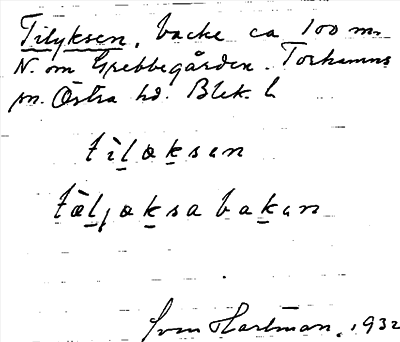 Tilyksen, backe ca 100 m.
N. om Grebbegården. Torhamns
sn. Östra hd. Blek. l.
tìlæksan
tæ̀ljæksabakan
Sven Hartman, 1932